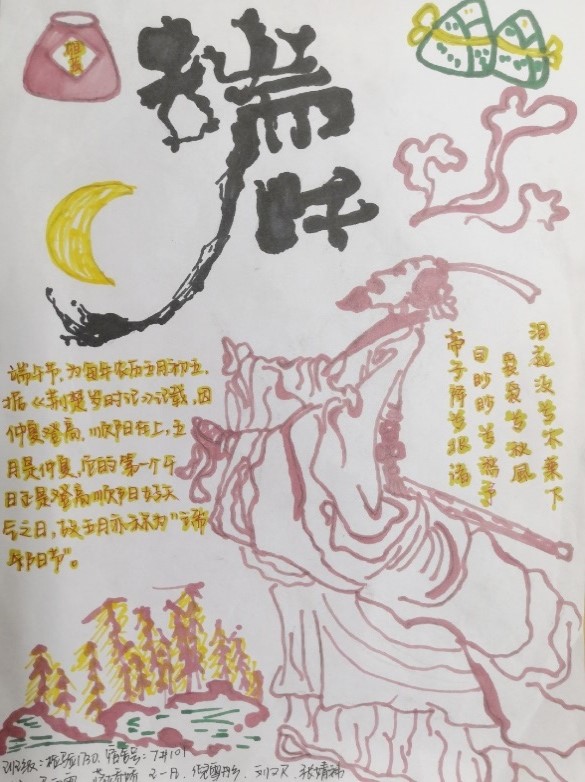 雄黄
端午
端午节，为每年农历五月初五。
据《荆楚岁时记》记载，因
仲夏登高，顺阳在上，五
月是仲夏，它的第一个午
日正是登高顺阳好天
气之日，故五月初五亦称为"端
阳节"。
帝子降兮北渚
目眇眇兮愁予
袅袅兮秋风
洞庭波兮木叶下
班级：检验1730，宿舍号：7#101